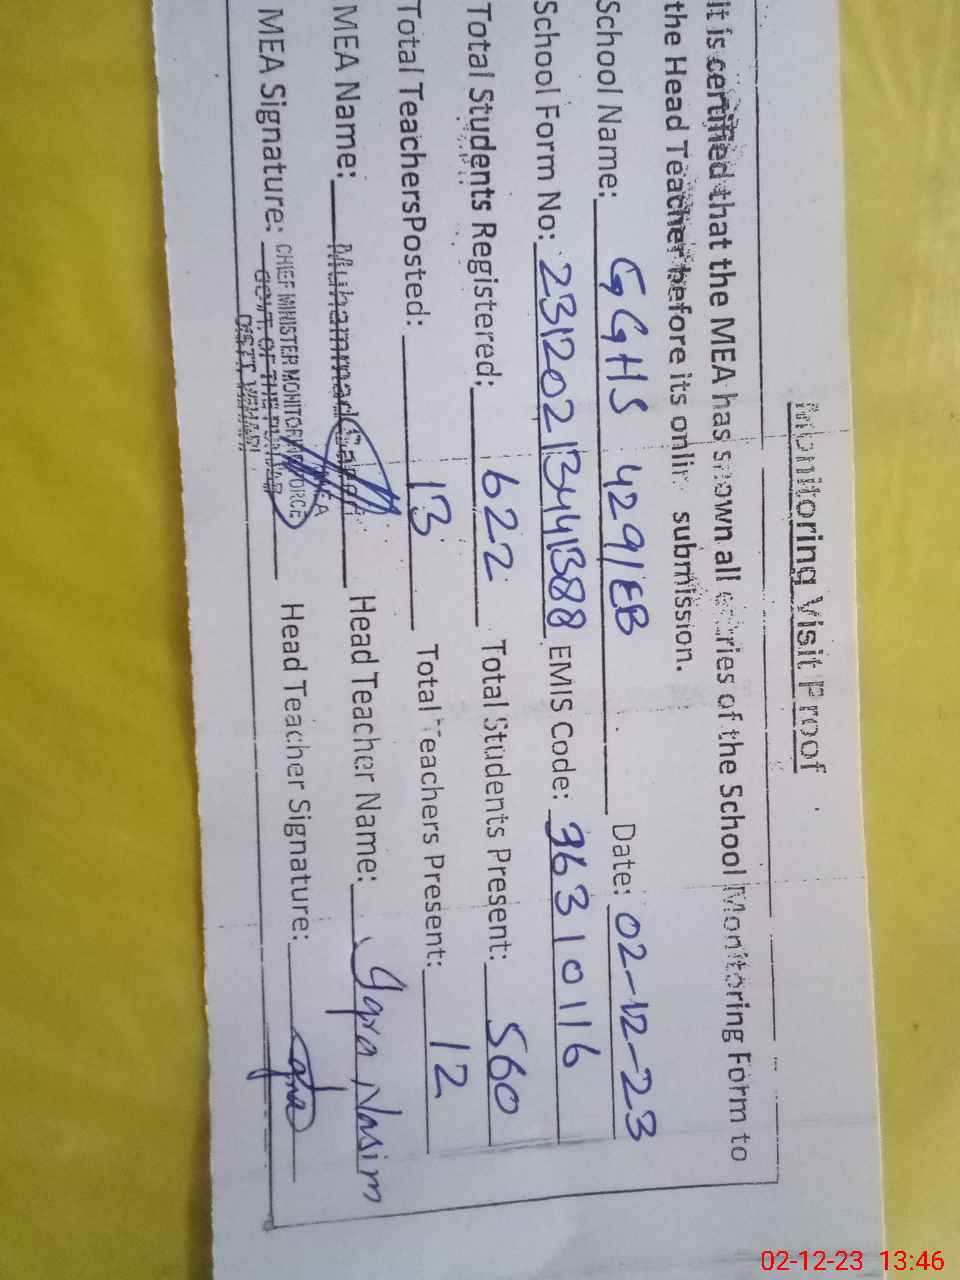 Monitoring Visit Proof
It is certified that the MEA has shown all entries of the School Monitoring Form to
the Head Teacher before its online submission.
School Name: GGHS 429/EB Date: 02-12-23
School Form No: 23120213441388 EMIS Code: 36310116
Total Students Registered: 622 Total Students Present: 560
Total TeachersPosted: 13 Total Teachers Present: 12
MEA Name: Muhammad Head Teacher Name: Iqra Nasim
MEA Signature: Head Teacher Signature: Iqra
MEA
CHIEF MINISTER MONITORING FORCE
GOVT. OF THE PUNJAB
DISTT. VEHARI
02-12-23 13:46